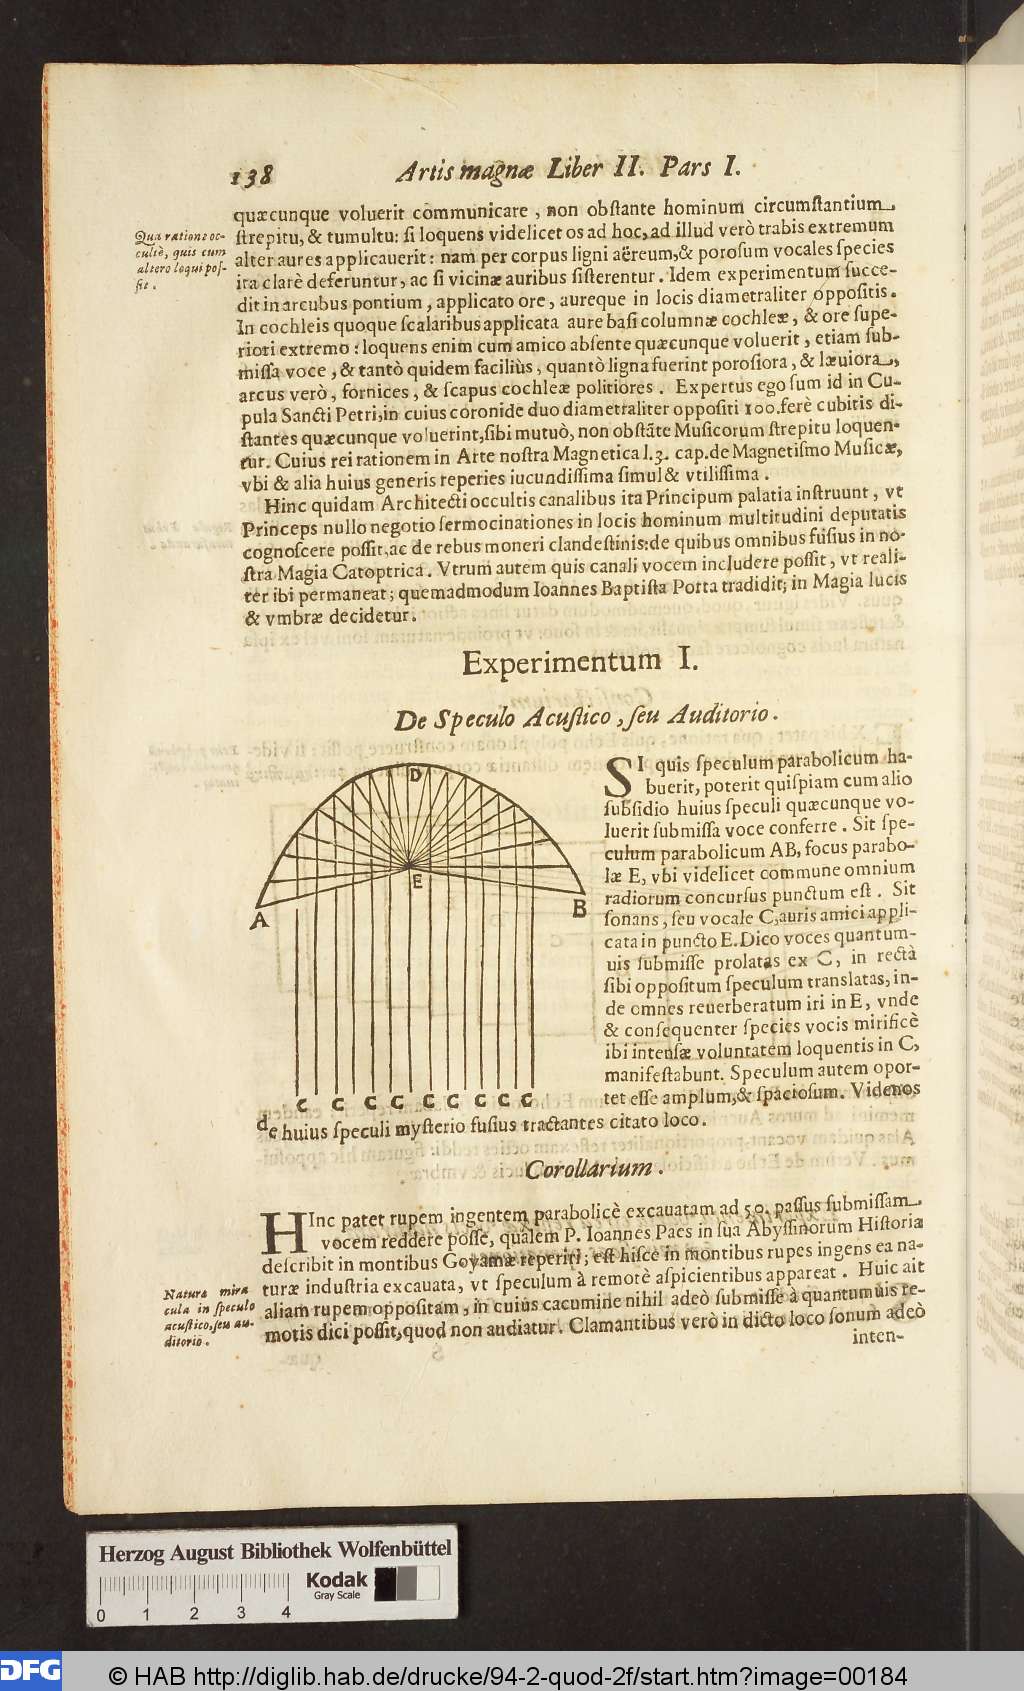 138 Artis magnæ Liber II. Pars I.
quæcunque voluerit communicare, non obſtante hominum circumſtantium
ſtrepitu, & tumultu: ſi loquens videlicet os ad hoc, ad illud verò trabis extremum
alter aures applicauerit: nam per corpus ligni aëreum, & poroſum vocales ſpecies
ita clarè deferuntur, ac ſi vicinæ auribus ſiſterentur. Idem experimentum ſucce-
dit in arcubus pontium, applicato ore, aureque in locis diametraliter oppoſitis.
In cochleis quoque ſcalaribus applicata aure baſi columnæ cochleæ, & ore ſupe-
riori extremo: loquens enim cum amico abſente quæcunque voluerit, etiam ſub-
miſſa voce, & tantò quidem facilius, quantò ligna fuerint poroſiora, & læuiora,
arcus verò, fornices, & ſcapus cochleæ politiores. Expertus ego ſum id in Cu-
pula Sancti Petri, in cuius coronide duo diametraliter oppoſiti 100. ferè cubitis di-
ſtantes quæcunque voluerint, ſibi mutuò, non obſtāte Muſicorum ſtrepitu loquen-
tur. Cuius rei rationem in Arte noſtra Magnetica l. 3. cap. de Magnetiſmo Muſicæ,
vbi & alia huius generis reperies iucundiſſima ſimul & vtiliſſima.
Hinc quidam Architecti occultis canalibus ita Principum palatia inſtruunt, vt
Princeps nullo negotio ſermocinationes in locis hominum multitudini deputatis
cognoſcere poſſit, ac de rebus moneri clandeſtinis: de quibus omnibus fuſius in no-
ſtra Magia Catoptrica. Vtrum autem quis canali vocem includere poſſit, vt reali-
ter ibi permaneat; quemadmodum Ioannes Baptiſta Porta tradidit; in Magia lucis
& vmbræ decidetur.
Qua ratione oc-
cultè, quis cum
altero loqui poſ-
ſit.
Experimentum I.
De Speculo Acuſtico, ſeu Auditorio.
D
E
A
B
C C C C C C C C C
SI quis ſpeculum parabolicum ha-
buerit, poterit quiſpiam cum alio
ſubſidio huius ſpeculi quæcunque vo-
luerit ſubmiſſa voce conferre. Sit ſpe-
culum parabolicum AB, focus parabo-
læ E, vbi videlicet commune omnium
radiorum concurſus punctum eſt. Sit
ſonans, ſeu vocale C, auris amici appli-
cata in puncto E. Dico voces quantum-
uis ſubmiſſe prolatas ex C, in rectà
ſibi oppoſitum ſpeculum translatas, in-
de omnes reuerberatum iri in E, vnde
& conſequenter ſpecies vocis mirificè
ibi intenſæ voluntatem loquentis in C,
manifeſtabunt. Speculum autem opor-
tet eſſe amplum, & ſpacioſum. Vide nos
de huius ſpeculi myſterio fuſius tractantes citato loco.
Corollarium.
HInc patet rupem ingentem parabolicè excauatam ad 50. paſſus ſubmiſſam
vocem reddere poſſe, qualem P. Ioannes Paes in ſua Abyſſinorum Hiſtoria
deſcribit in montibus Goyamæ reperiri; eſt hiſce in montibus rupes ingens ea na-
turæ induſtria excauata, vt ſpeculum à remotè aſpicientibus appareat. Huic ait
aliam rupem oppoſitam, in cuius cacumine nihil adeò ſubmiſſe à quantumuis re-
motis dici poſſit, quod non audiatur. Clamantibus verò in dicto loco ſonum adeò
inten-
Natura mira
cula in ſpeculo
acuſtico, ſeu au-
ditorio.
Herzog August Bibliothek Wolfenbüttel
0 1 2 3 4
Kodak
Gray Scale
DFG © HAB http://diglib.hab.de/drucke/94-2-quod-2f/start.htm?image=00184